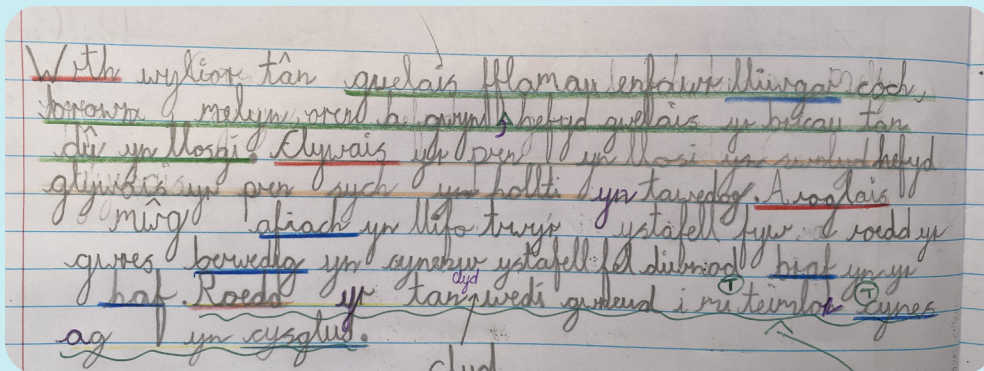 With wylior tân guelais fflamau enfawr lliwgar coch,
browr melyn, oren a gwyn, hefyd guelais yr bricau tân
dû yn llosgi. Clywais yr pren yn llosi yn hefyd
glywais yr pren sych yn hollti yn tawedog. Aroglais
mŵg afiach yn llifo trwy'r ystafell fyw. a roedd yr
gwres berwedig yn cynehu ystafell fel diwrnod braf yn yr
haf. Roedd yr tan clyd wedi gwneud i mi teimlo T T cynes
ag yn cysglud.
clyd